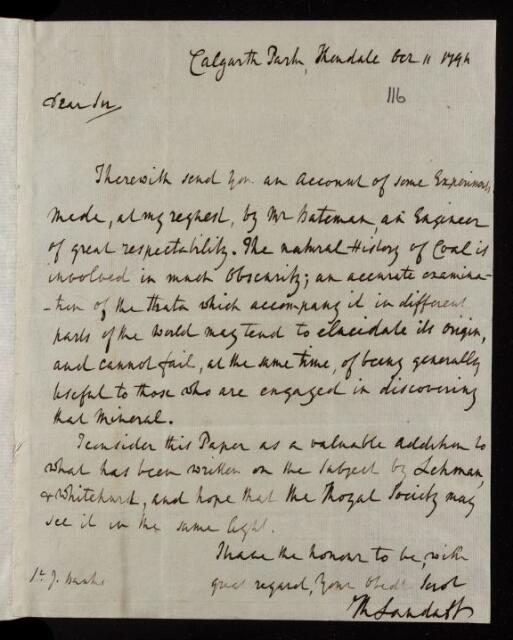 Calgarth Park, Kendale Oct 11 1794
116
Dear Sir
I herewith send you an account of some Experiments,
made, at my request, by Mr Bateman, an Engineer
of great respectability. The natural History of Coal is
involved in much Obscurity; an accurate examina-
-tion of the Strata which accompany it in different
parts of the world may tend to elucidate its origin,
and cannot fail, at the same time, of being generally
useful to those who are engaged in discovering
that Mineral.
I consider this Paper as a valuable addition to
what has been written on the subject by Lehman,
& Whitehurst, and hope that the Royal Society may
see it in the same light.
I have the honour to be, with
great regard, Your Obedt Servt
Sr. J. Banks
R Landaff